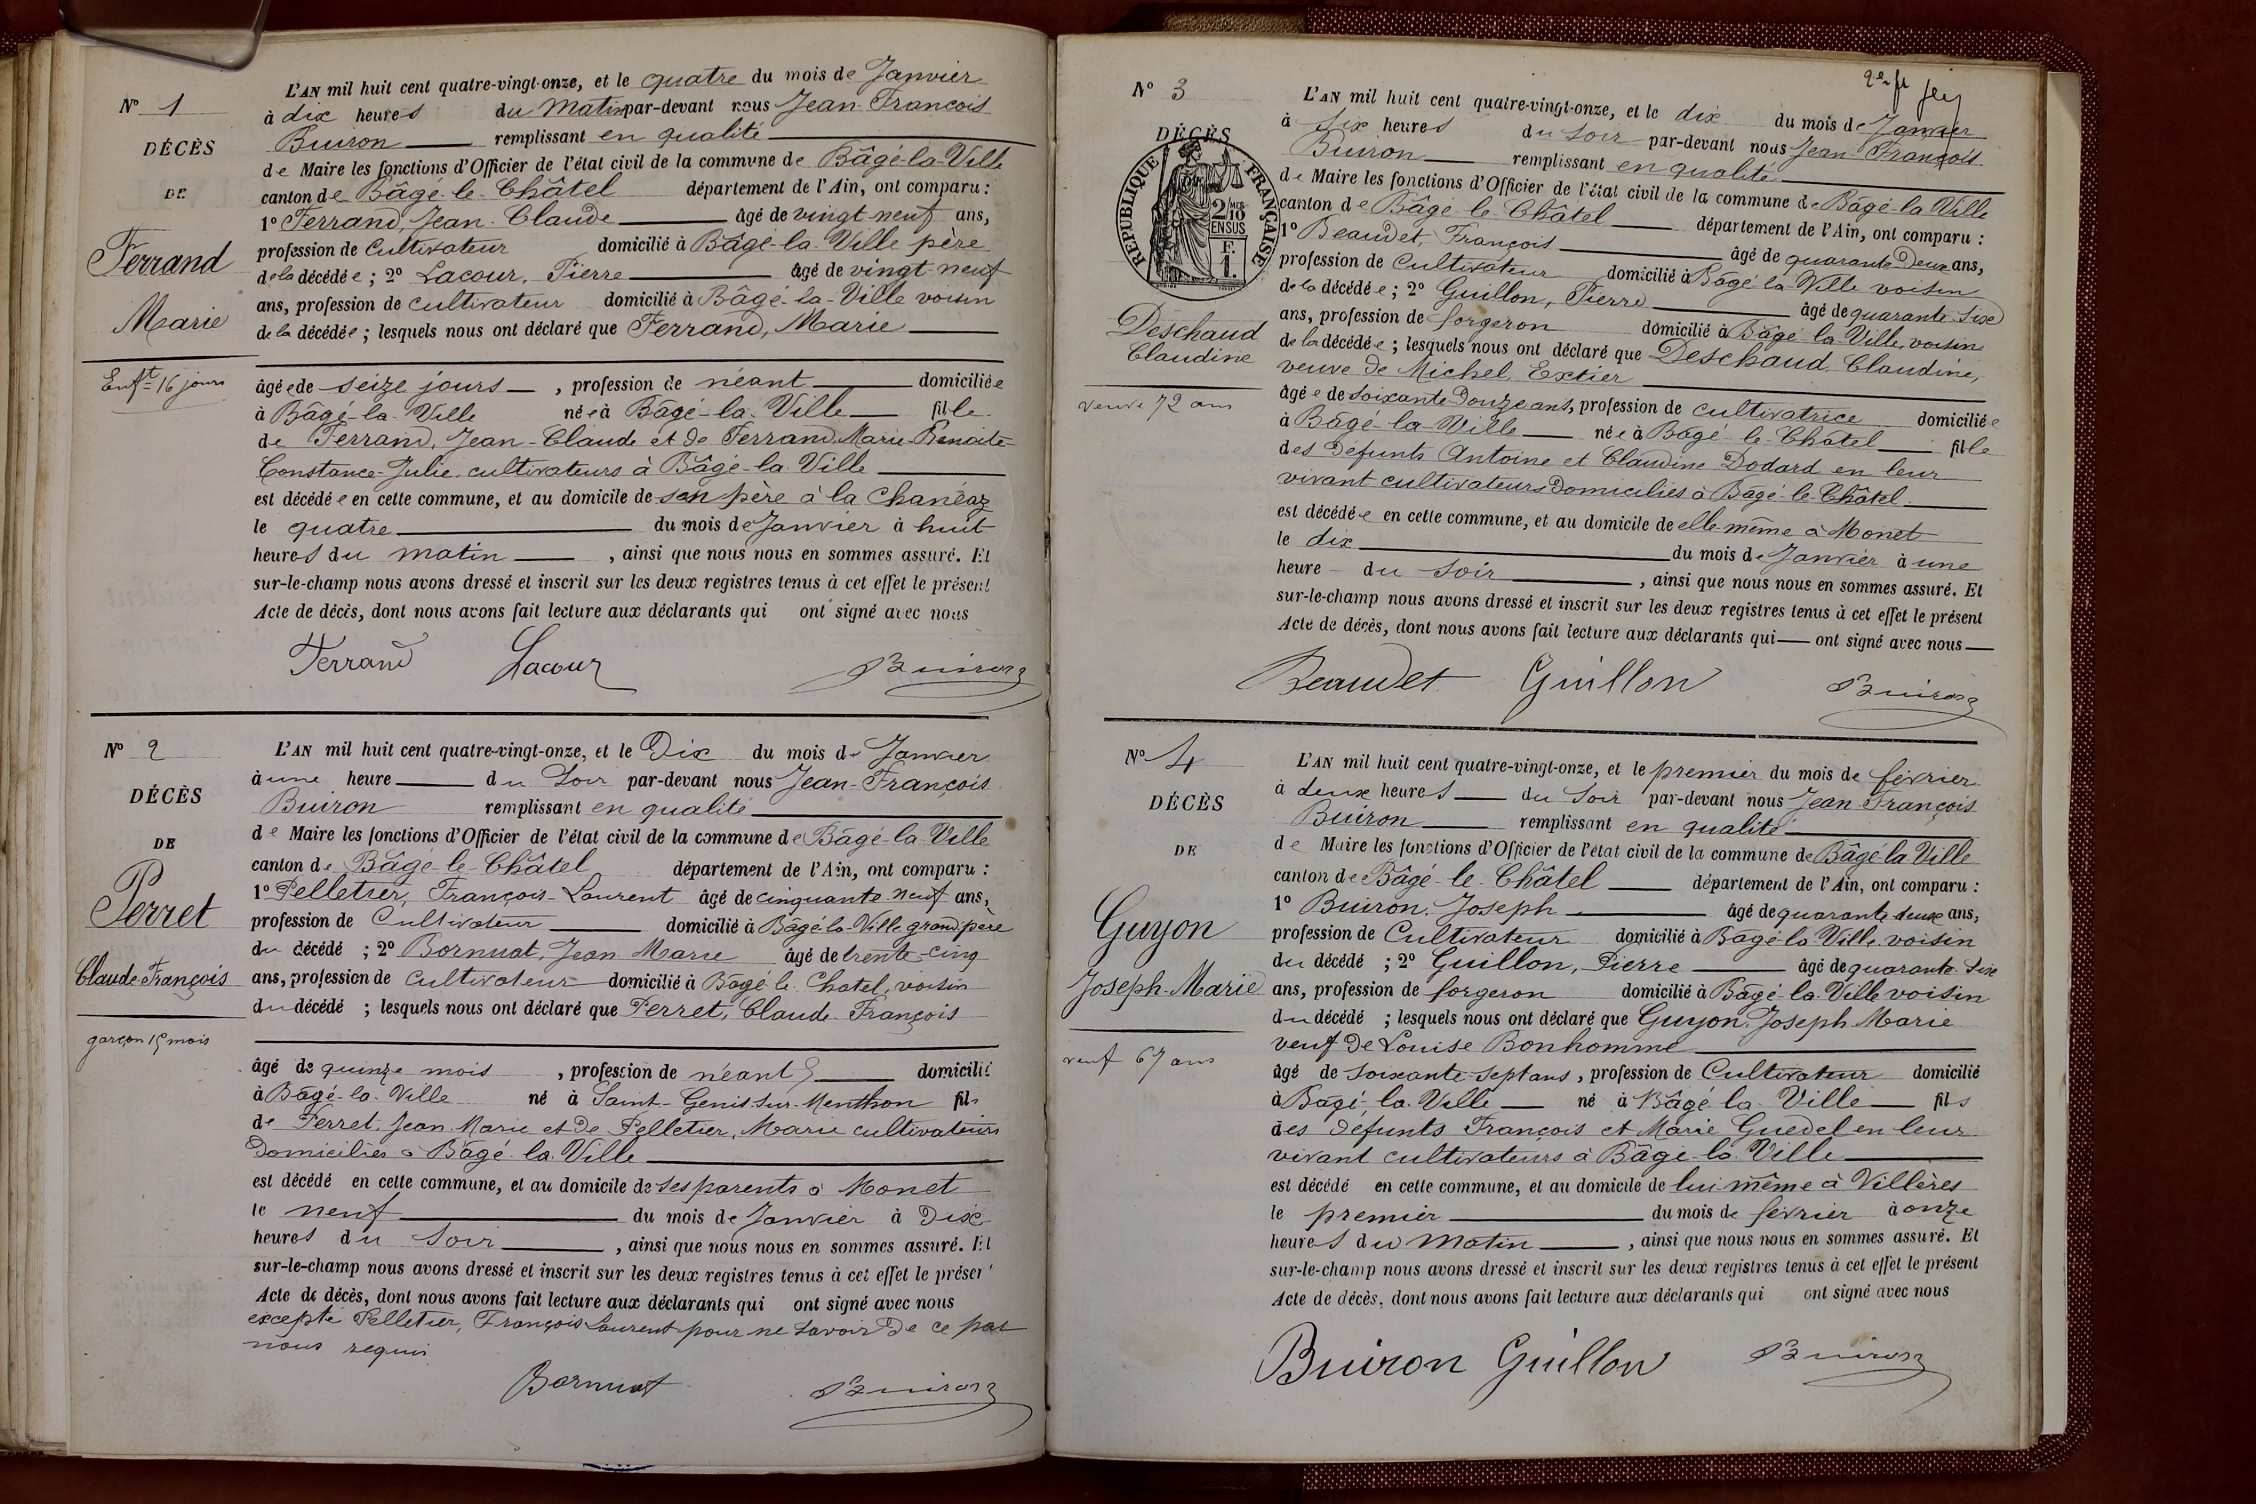 N° 1
DÉCÈS
DE
Ferrand
Marie
Enft 16 jours
L'AN mil huit cent quatre-vingt-onze, et le quatre du mois de Janvier
à dix heures du Matin par-devant nous Jean-François
Buiron remplissant en qualité
de Maire les fonctions d'Officier de l'état civil de la commune de Bâgé-la-Ville
canton de Bâgé-le-Châtel département de l'Ain, ont comparu :
1° Ferrand, Jean-Claude âgé de vingt-neuf ans,
profession de Cultivateur domicilié à Bâgé-la-Ville père
de la décédée ; 2° Lacour, Pierre âgé de vingt-neuf
ans, profession de cultivateur domicilié à Bâgé-la-Ville voisin
de la décédée ; lesquels nous ont déclaré que Ferrand, Marie
âgée de seize jours , profession de néant domiciliée
à Bâgé-la-Ville née à Bâgé-la-Ville fille
de Ferrand, Jean-Claude et de Ferrand Marie-Benoite-
Constance-Julie, cultivateurs à Bâgé-la-Ville
est décédée en cette commune, et au domicile de son père à la Chanéaz
le quatre du mois de Janvier à huit
heures du matin , ainsi que nous nous en sommes assuré. Et
sur-le-champ nous avons dressé et inscrit sur les deux registres tenus à cet effet le présent
Acte de décès, dont nous avons fait lecture aux déclarants qui ont signé avec nous
Ferrand Lacour Buiron
N° 2
DÉCÈS
DE
Perret
Claude-François
garçon 15 mois
L'AN mil huit cent quatre-vingt-onze, et le Dix du mois de Janvier
à une heure du Soir par-devant nous Jean-François
Buiron remplissant en qualité
de Maire les fonctions d'Officier de l'état civil de la commune de Bâgé-la-Ville
canton de Bâgé-le-Châtel département de l'Ain, ont comparu :
1° Pelletier, François-Laurent âgé de cinquante-neuf ans,
profession de Cultivateur domicilié à Bâgé-la-Ville grand'père
du décédé ; 2° Bornuat, Jean Marie âgé de trente-cinq
ans, profession de Cultivateur domicilié à Bâgé-le-Chatel, voisin
du décédé ; lesquels nous ont déclaré que Perret, Claude-François
âgé de quinze mois , profession de néant domicilié
à Bâgé-la-Ville né à Saint-Genis-sur-Menthon fils
de Perret, Jean-Marie et de Pelletier, Marie cultivateurs
Domiciliés à Bâgé-la-Ville
est décédé en cette commune, et au domicile de ses parents à Monet
le neuf du mois de Janvier à Dix
heures du Soir , ainsi que nous nous en sommes assuré. Et
sur-le-champ nous avons dressé et inscrit sur les deux registres tenus à cet effet le présent
Acte de décès, dont nous avons fait lecture aux déclarants qui ont signé avec nous
excepté Pelletier, François Laurent pour ne savoir de ce par
nous requis
Bornuat Buiron
N° 3
DÉCÈS
RÉPUBLIQUE FRANÇAISE
2/10 MES
EN SUS
F.
1.
Deschaud
Claudine
veuve 72 ans
L'AN mil huit cent quatre-vingt-onze, et le dix du mois de Janvier
à Six heures du Soir par-devant nous Jean-François
Buiron remplissant en qualité
de Maire les fonctions d'Officier de l'état civil de la commune de Bâgé-la-Ville
canton de Bâgé-le-Châtel département de l'Ain, ont comparu :
1° Beaudet, François âgé de quarante-Deux ans,
profession de Cultivateur domicilié à Bâgé-la-Ville voisin
de la décédée ; 2° Guillon, Pierre âgé de quarante-Six
ans, profession de forgeron domicilié à Bâgé-la-Ville, voisin
de la décédée ; lesquels nous ont déclaré que Deschaud Claudine,
veuve de Michel Extier
âgée de soixante Douze ans, profession de cultivatrice domiciliée
à Bâgé-la-Ville née à Bâgé-le-Châtel fille
des Défunts Antoine et Claudine Dodard en leur
vivant cultivateurs Domiciliés à Bâgé-le-Châtel
est décédée en cette commune, et au domicile de elle-même à Monet
le dix du mois de Janvier à une
heure du Soir , ainsi que nous nous en sommes assuré. Et
sur-le-champ nous avons dressé et inscrit sur les deux registres tenus à cet effet le présent
Acte de décès, dont nous avons fait lecture aux déclarants qui ont signé avec nous
Beaudet Guillon Buiron
N° 4
DÉCÈS
DE
Guyon
Joseph-Marie
veuf 67 ans
L'AN mil huit cent quatre-vingt-onze, et le premier du mois de février
à deux heures du Soir par-devant nous Jean-François
Buiron remplissant en qualité
de Maire les fonctions d'Officier de l'état civil de la commune de Bâgé-la-Ville
canton de Bâgé-le-Châtel département de l'Ain, ont comparu :
1° Buiron, Joseph âgé de quarante deux ans,
profession de Cultivateur domicilié à Bâgé-la-Ville voisin
du décédé ; 2° Guillon, Pierre âgé de quarante-Six
ans, profession de forgeron domicilié à Bâgé-la-Ville voisin
du décédé ; lesquels nous ont déclaré que Guyon, Joseph Marie
veuf de Louise Bonhomme
âgé de soixante-sept ans, profession de Cultivateur domicilié
à Bâgé-la-Ville né à Bâgé-la-Ville fils
des défunts François et Marie Guedel en leur
vivant cultivateurs à Bâgé-la-Ville
est décédé en cette commune, et au domicile de lui-même à Villères
le premier du mois de février à onze
heures du Matin , ainsi que nous nous en sommes assuré. Et
sur-le-champ nous avons dressé et inscrit sur les deux registres tenus à cet effet le présent
Acte de décès, dont nous avons fait lecture aux déclarants qui ont signé avec nous
Buiron Guillon Buiron